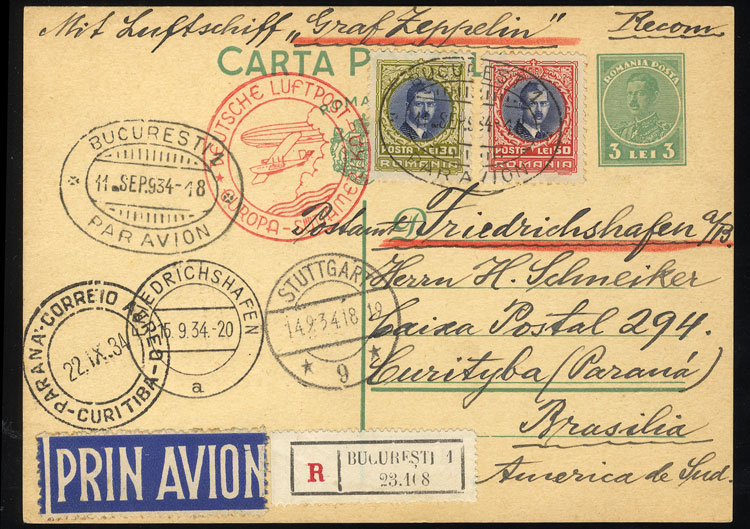 Mit Luftschiff „Graf Zeppelin" Recom.
CARTA
ROMANIA POSTA
3 LEI 3
POSTA LEI 30
ROMANIA
POSTA LEI 50
ROMANIA
PAR AVION
DEUTSCHE LUFTPOST
EUROPA-SÜDAMERIKA
BUCURESTI
11. SEP.934-18
PAR AVION
Postamt Friedrichshafen a/B.
Herrn H. Schneiker
Caixa Postal 294.
Curityba (Paraná)
Brasilia
America de Sud.
STUTTGART
14.9.34.18-19
9
FRIEDRICHSHAFEN
15.9.34.-20
a
CORREIO AEREO
22.IX.34
PARANA-CURITIBA
PRIN AVION
R
BUCUREȘTI 1
23.108